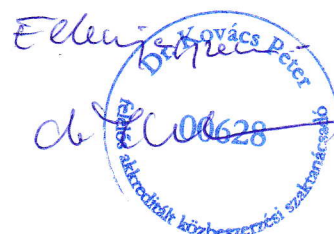 Ellenjegyzem:
Dr. Kovács Péter
00628
felelős akkreditált közbeszerzési szaktanácsadó